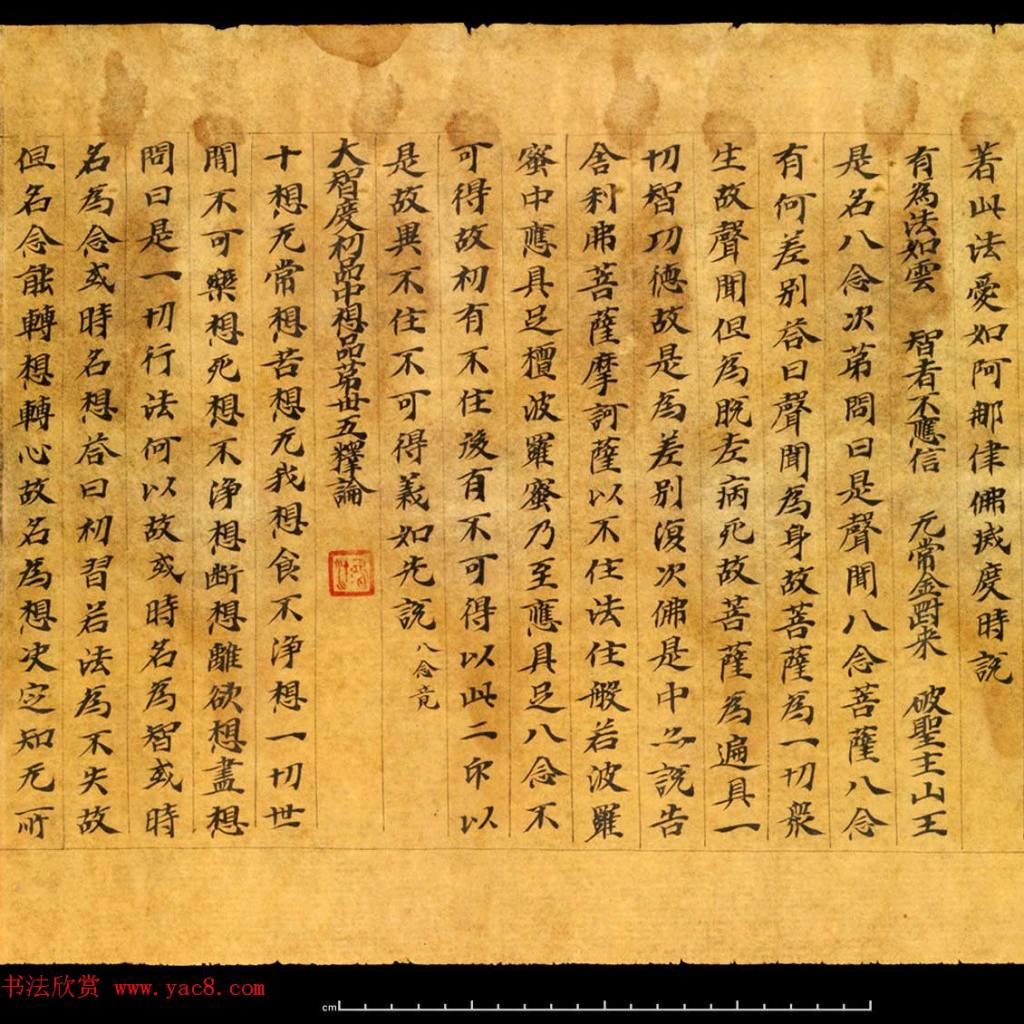 若此法愛如阿那律佛滅度時說
有為法如雲　智者不應信　无常金剛来　破聖主山王
是名八念次第問曰是聲聞八念菩薩八念
有何差别答曰聲聞為身故菩薩為一切衆
生故聲聞但為脫老病死故菩薩為遍具一
切智功德故是為差别復次佛是中亦說告
舍利弗菩薩摩訶薩以不住法住般若波羅
蜜中應具足檀波羅蜜乃至應具足八念不
可得故初有不住後有不可得以此二印以
是故異不住不可得義如先說 八念竟
大智度初品中想品第卅五釋論
十想无常想苦想无我想食不淨想一切世
間不可樂想死想不淨想断想離欲想盡想
問曰是一切行法何以故或時名為智或時
名為念或時名想答曰初習若法為不失故
但名念能轉想轉心故名為想决定知无所
书法欣赏 www.yac8.com
cm